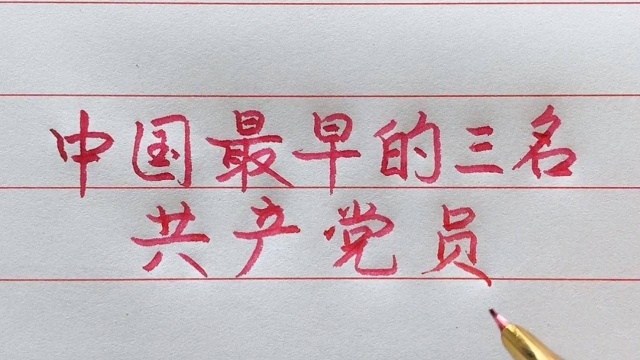 中国最早的三名
共产党员